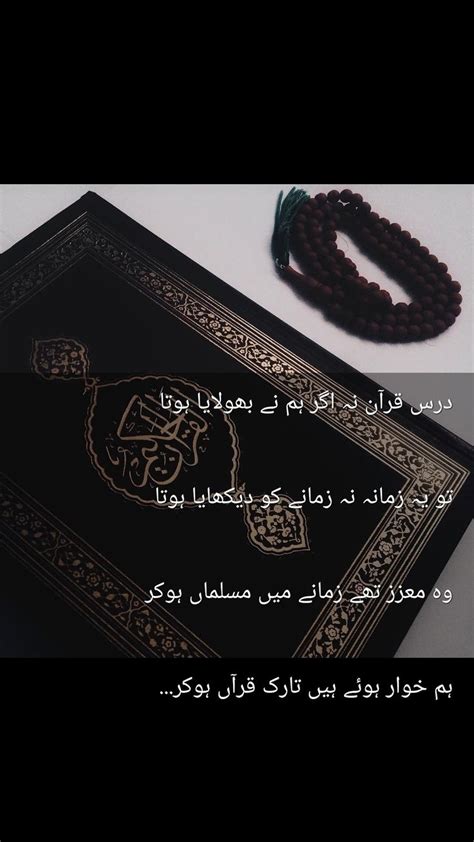 درس قرآن نہ اگر ہم نے بھولایا ہوتا
تو یہ زمانہ نہ زمانے کو دیکھایا ہوتا
وہ معزز تھے زمانے میں مسلماں ہوکر
ہم خوار ہوئے ہیں تارک قرآں ہوکر...